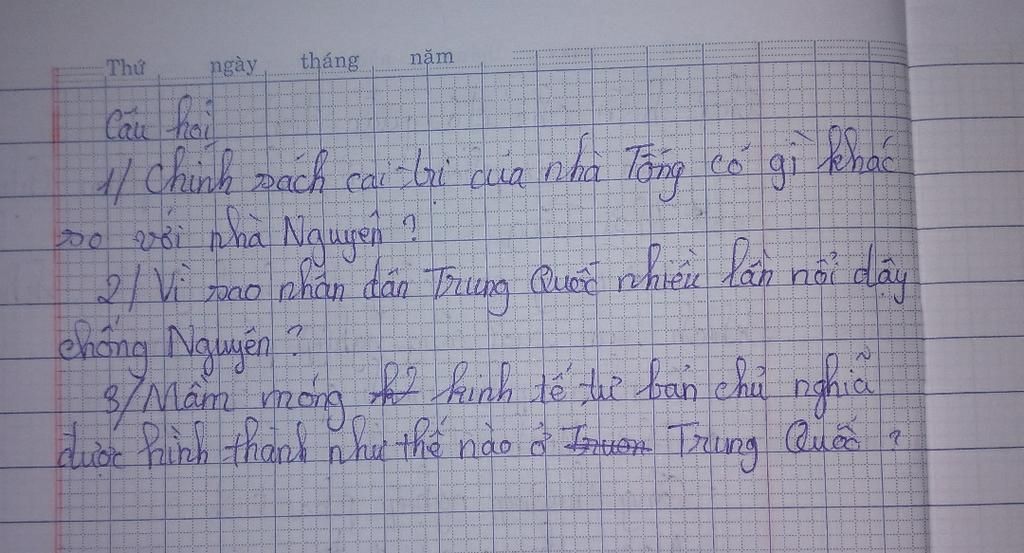 Thứ ngày tháng năm
Câu hỏi
1/ Chính sách cai trị của nhà Tống có gì khác
so với nhà Nguyên ?
2/ Vì sao nhân dân Trung Quốc nhiều lần nổi dậy
chống Nguyên ?
3/ Mầm mống kinh tế tư bản chủ nghĩa
được hình thành như thế nào ở Trung Quốc ?